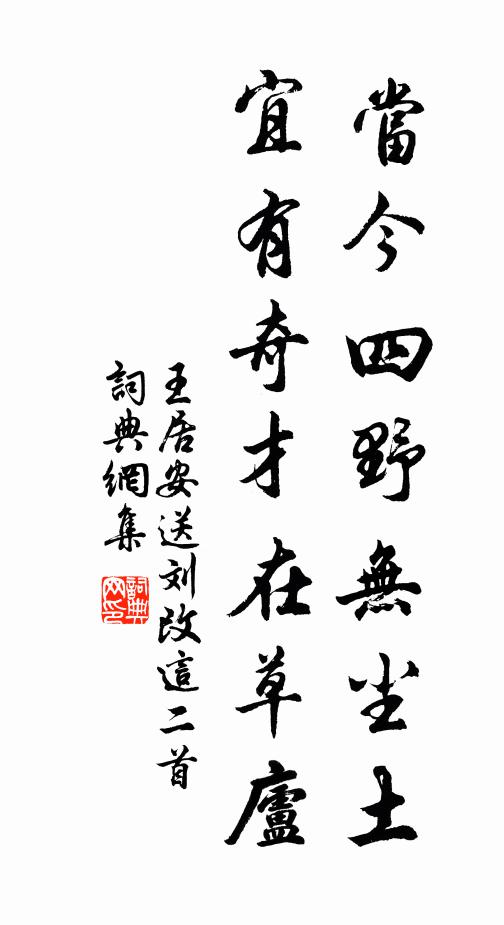 當今四野無尘土
宜有奇才在草廬
王居安送刘改這二首
詞典網集
詞典
网印